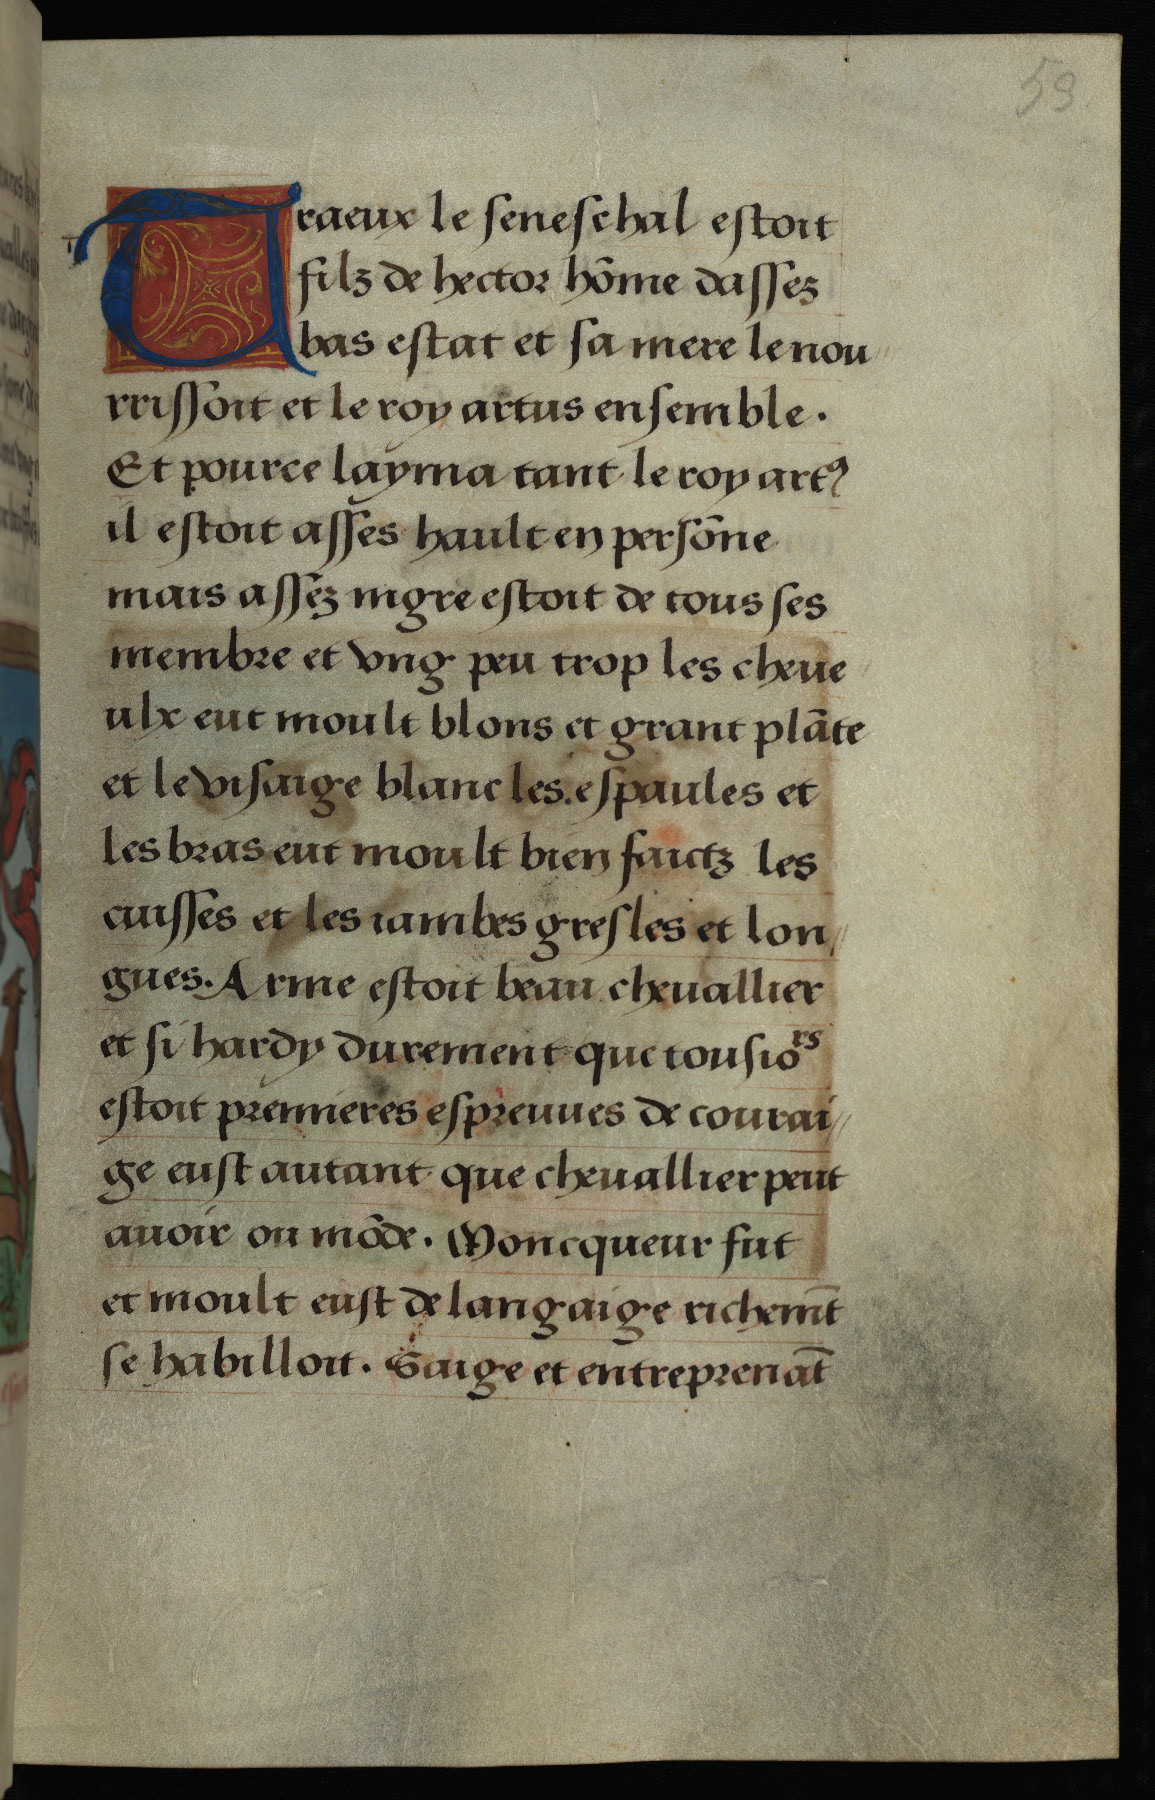 59
Traeux le seneschal estoit
filz de hector hōme dassez
bas estat et sa mere le nou〃
rrissoit et le roy artus ensemble.
Et pource layma tant le roy artꝰ
il estoit asses hault en persōne
mais assez mgre estoit de tous ses
membre et vng peu trop les cheue〃
ulx eut moult blons et grant plāte
et le visaige blanc les espaules et
les bras eut moult bien faictz les
cuisses et les iambes gresles et lon〃
gues. Arme estoit beau cheuallier
et si hardy durement que tousiors
estoit premieres espreuues de courai〃
ge eust autant que cheuallier peut
auoir ou mōde. Moncqueur fut
et moult eust de langaige richemt̄
se habilloit. Saige et entreprenāt